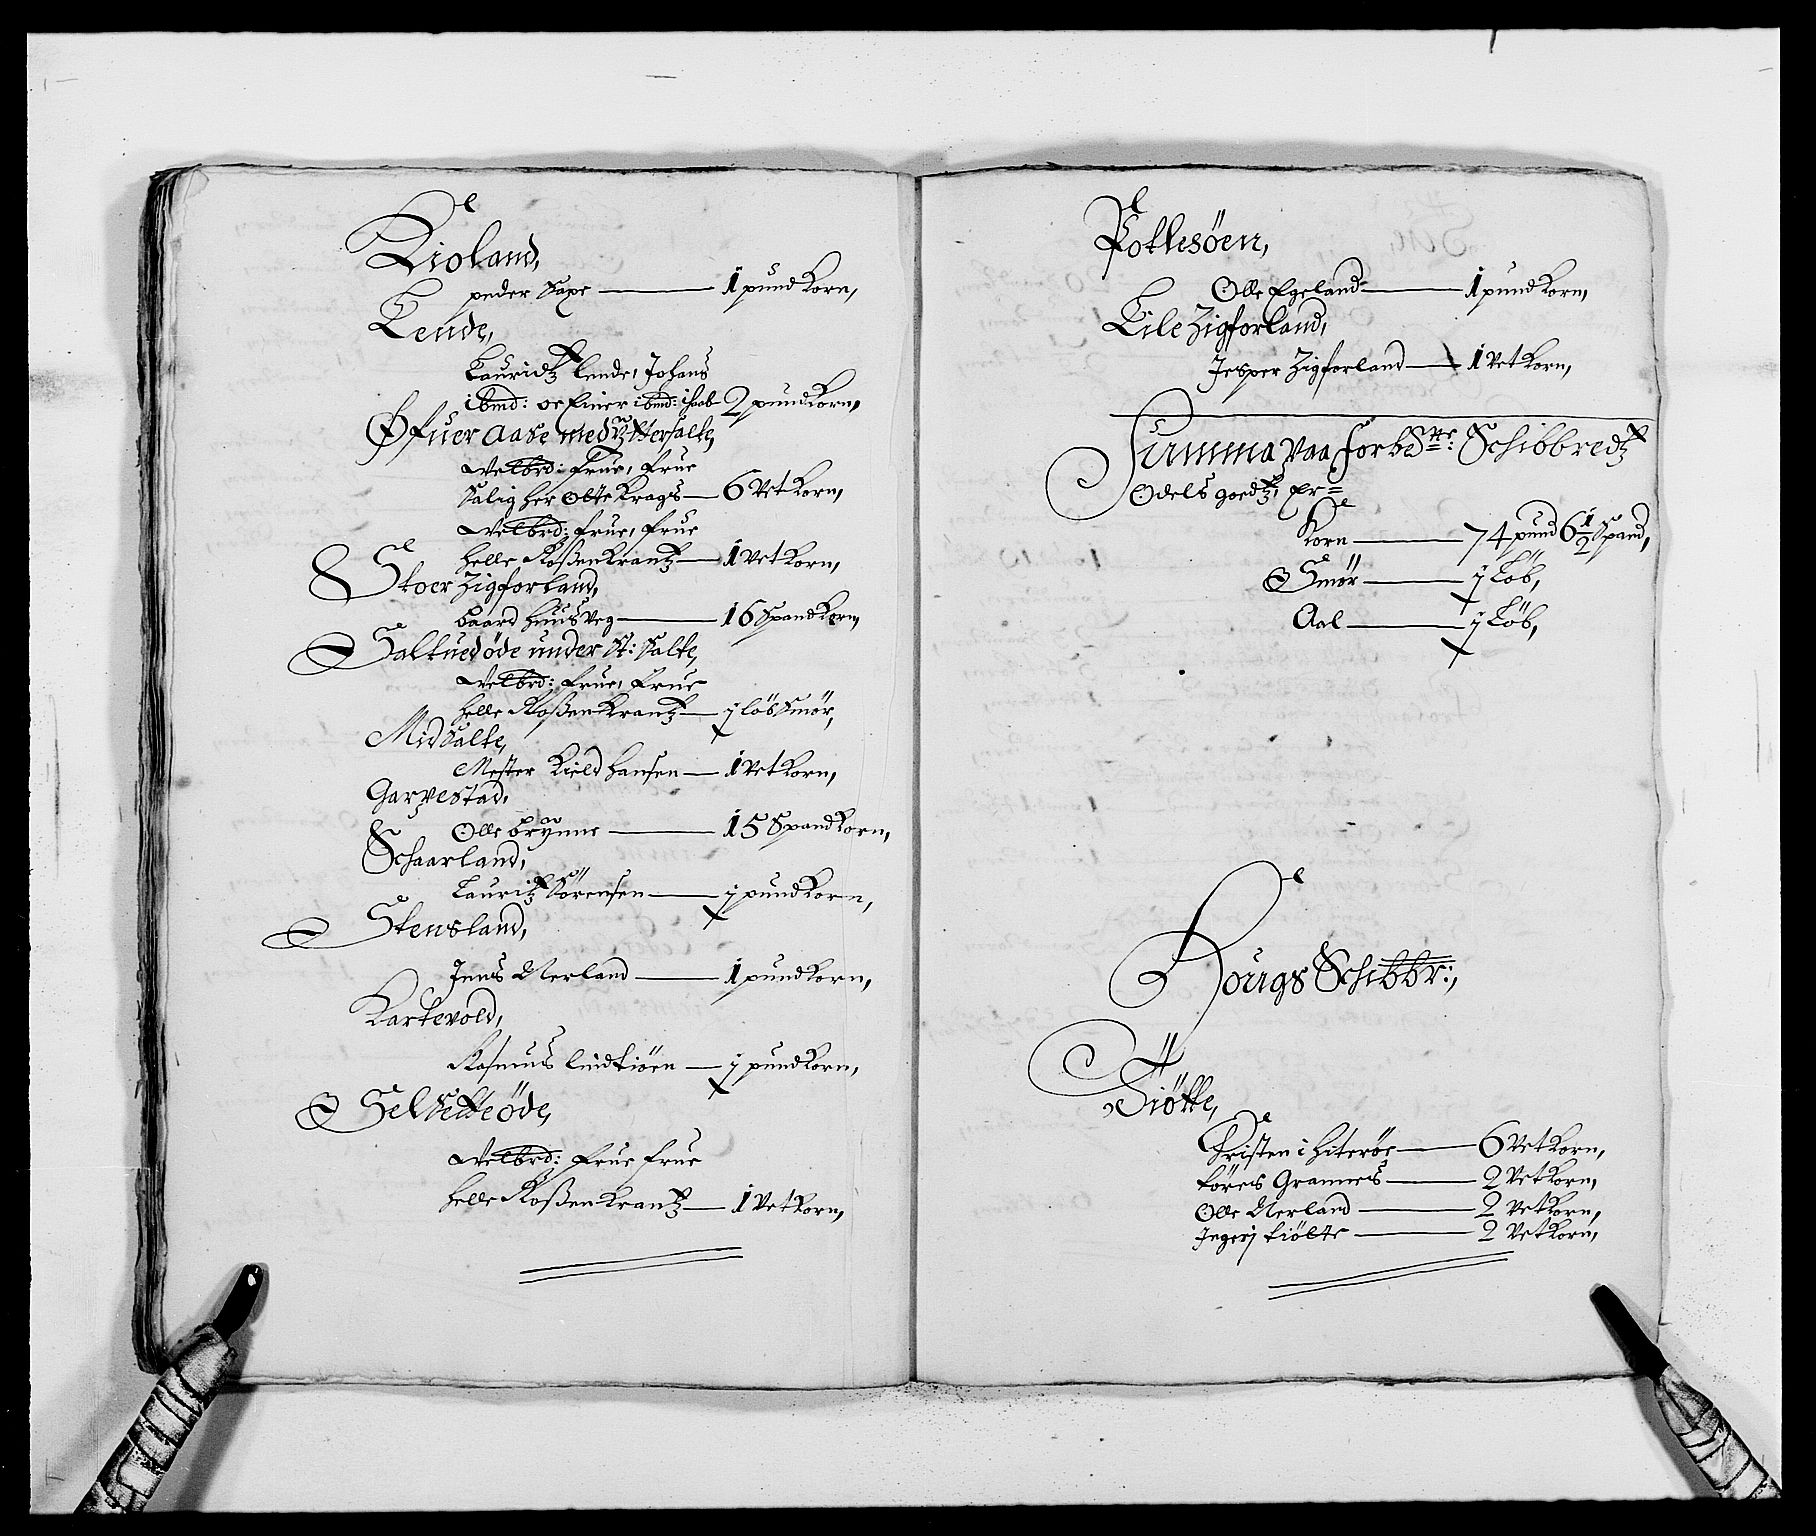 Kioland,
peder Saxe — 1 pund Korn,
Lende,
Lauridtz lende, Johans
ibmd: oc Einer ibmd: ihaab 2 pund Korn,
Øfuer Aase med ytterSalte,
Velbrd: frue, frue
Salig her Olte Krags — 6 Vet Korn,
Velbrd: frue, frue
helle Roßenkrantz — 1 Vet Korn,
Stoer Zigforland,
baard huusveg — 16 Spand Korn,
Saltuedøde under St: Salte,
Velbrd: frue, frue
helle Roßenkrantz — j løb Smør,
Mid Salte,
Mester Kield hansen — 1 Vet Korn,
Garpestad,
Olle brynne — 15 Spand Korn,
Schaarland,
Lauritz Sörensen — j pund Korn,
Stensland,
Jens Nerland — 1 pund Korn,
Kartevold,
Rasmus lindtiøen — j pund Korn,
Selvetteøde,
Velbrd: frue frue
helle Roßenkrantz — 1 Vet Korn,
Potlesöen,
Olle Egeland — 1 pund Korn,
Lile Zigforland,
Jesper Zigforland — 1 Vet Korn,
Summa paa forbeste: Schibbredtz
Odels goedtz, er=
Korn — 74 pund 6 1/2 Spand,
Smör — j Löb,
Aal — j Löb,
Hougs Schibbr:,
Tiötte,
Christen i hiteröe — 6 Vet Korn,
töres Grannes — 2 Vet Korn,
Olle Nerland — 2 Vet Korn,
Jngerj tiötte — 2 Vet Korn,